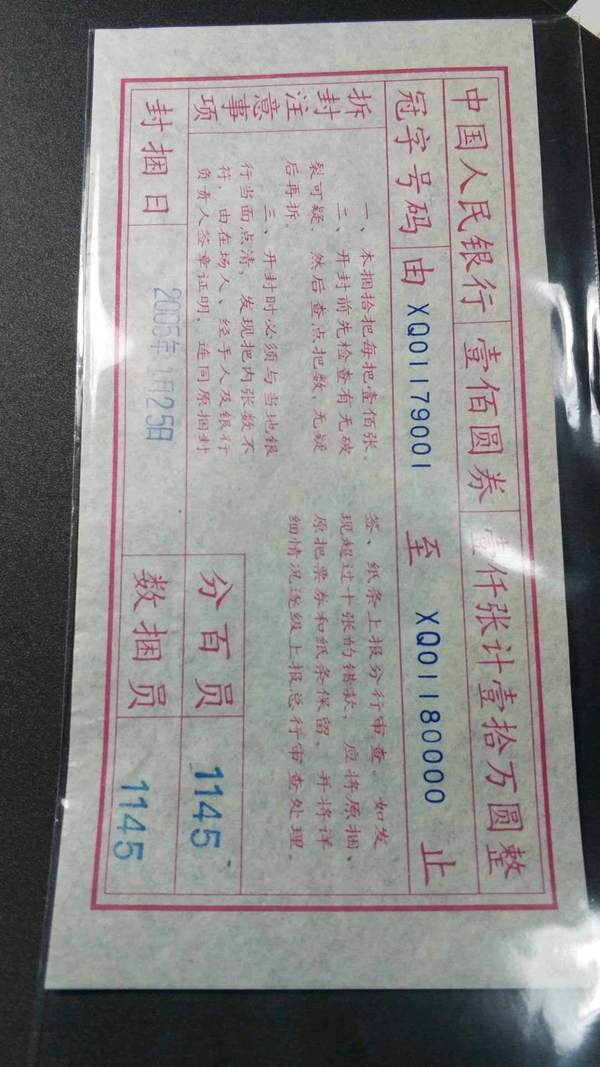 中国人民银行 壹佰圆券 壹仟张计壹拾万圆整
冠字号码 由 XQ01179001 至 XQ01180000 止
拆封注意事项
一、本捆拾把每把壹佰张。
二、开封前先检查有无破
裂可疑，然后查点把数，无疑
后再拆。
三、开封时必须与当地银
行当面点清，发现把内张数不
符，由在场人、经手人及银行
负责人签章证明，连同原捆封
签、纸条上报分行审查。如发
现超过十张的错款，应将原捆、
原把票券和纸条保留，并将详
细情况逐级上报总行审查处理。
封捆日 2005年1月25日
分百员 1145
数捆员 1145